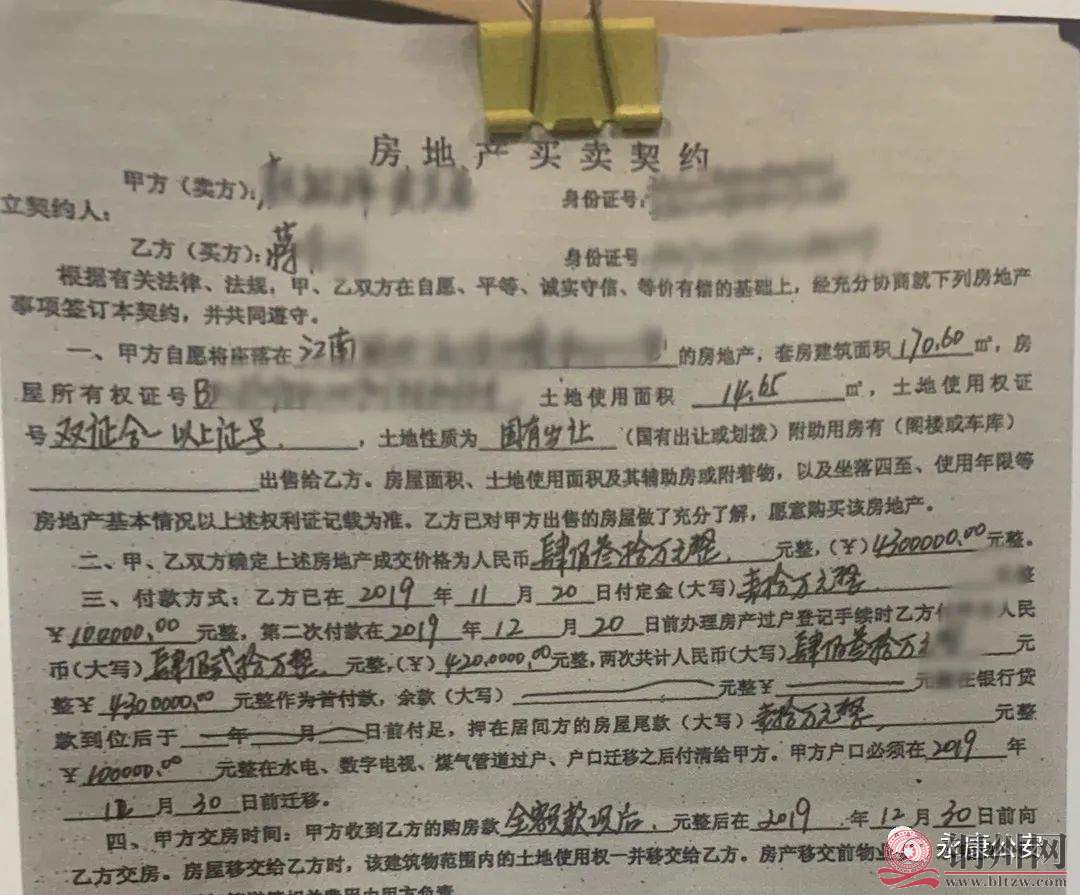 房地产买卖契约
甲方（卖方）：
身份证号：
立契约人：
乙方（买方）：蒋
身份证号
根据有关法律、法规，甲、乙双方在自愿、平等、诚实守信、等价有偿的基础上，经充分协商就下列房地产
事项签订本契约，并共同遵守。
一、甲方自愿将座落在 江南 的房地产，套房建筑面积 170.60 ㎡，房
屋所有权证号 B 土地使用面积 14.65 ㎡，土地使用权证
号 双证合一 以上证号 ，土地性质为 国有出让 （国有出让或划拨）附助用房有（阁楼或车库）
出售给乙方。房屋面积、土地使用面积及其辅助房或附着物，以及坐落四至、使用年限等
房地产基本情况以上述权利证记载为准。乙方已对甲方出售的房屋做了充分了解，愿意购买该房地产。
二、甲、乙双方确定上述房地产成交价格为人民币 肆佰叁拾万元整 元整，（￥）4300000.00 元整。
三、付款方式：乙方已在 2019 年 11 月 20 日付定金（大写）壹拾万元整 整
￥ 100000.00 元整，第二次付款在 2019 年 12 月 20 日前办理房产过户登记手续时乙方付 人民
币（大写）肆佰贰拾万整 元整，（￥）4200000.00 元整，两次共计人民币（大写）肆佰叁拾万元 元
整￥ 4300000.00 元整作为首付款，余款（大写） 元整￥ 元 在银行贷
款到位后于 年 月 日前付足，押在居间方的房屋尾款（大写）壹拾万元整 元整
￥ 100000.00 元整在水电、数字电视、煤气管道过户、户口迁移之后付清给甲方。甲方户口必须在 2019 年
12 月 30 日前迁移。
四、甲方交房时间：甲方收到乙方的购房款 全额款项后 元整后在 2019 年 12 月 30 日前向
乙方交房。房屋移交给乙方时，该建筑物范围内的土地使用权一并移交给乙方。房产移交前物业
相关费用由甲方负责
永康公安
www.bltzw.com